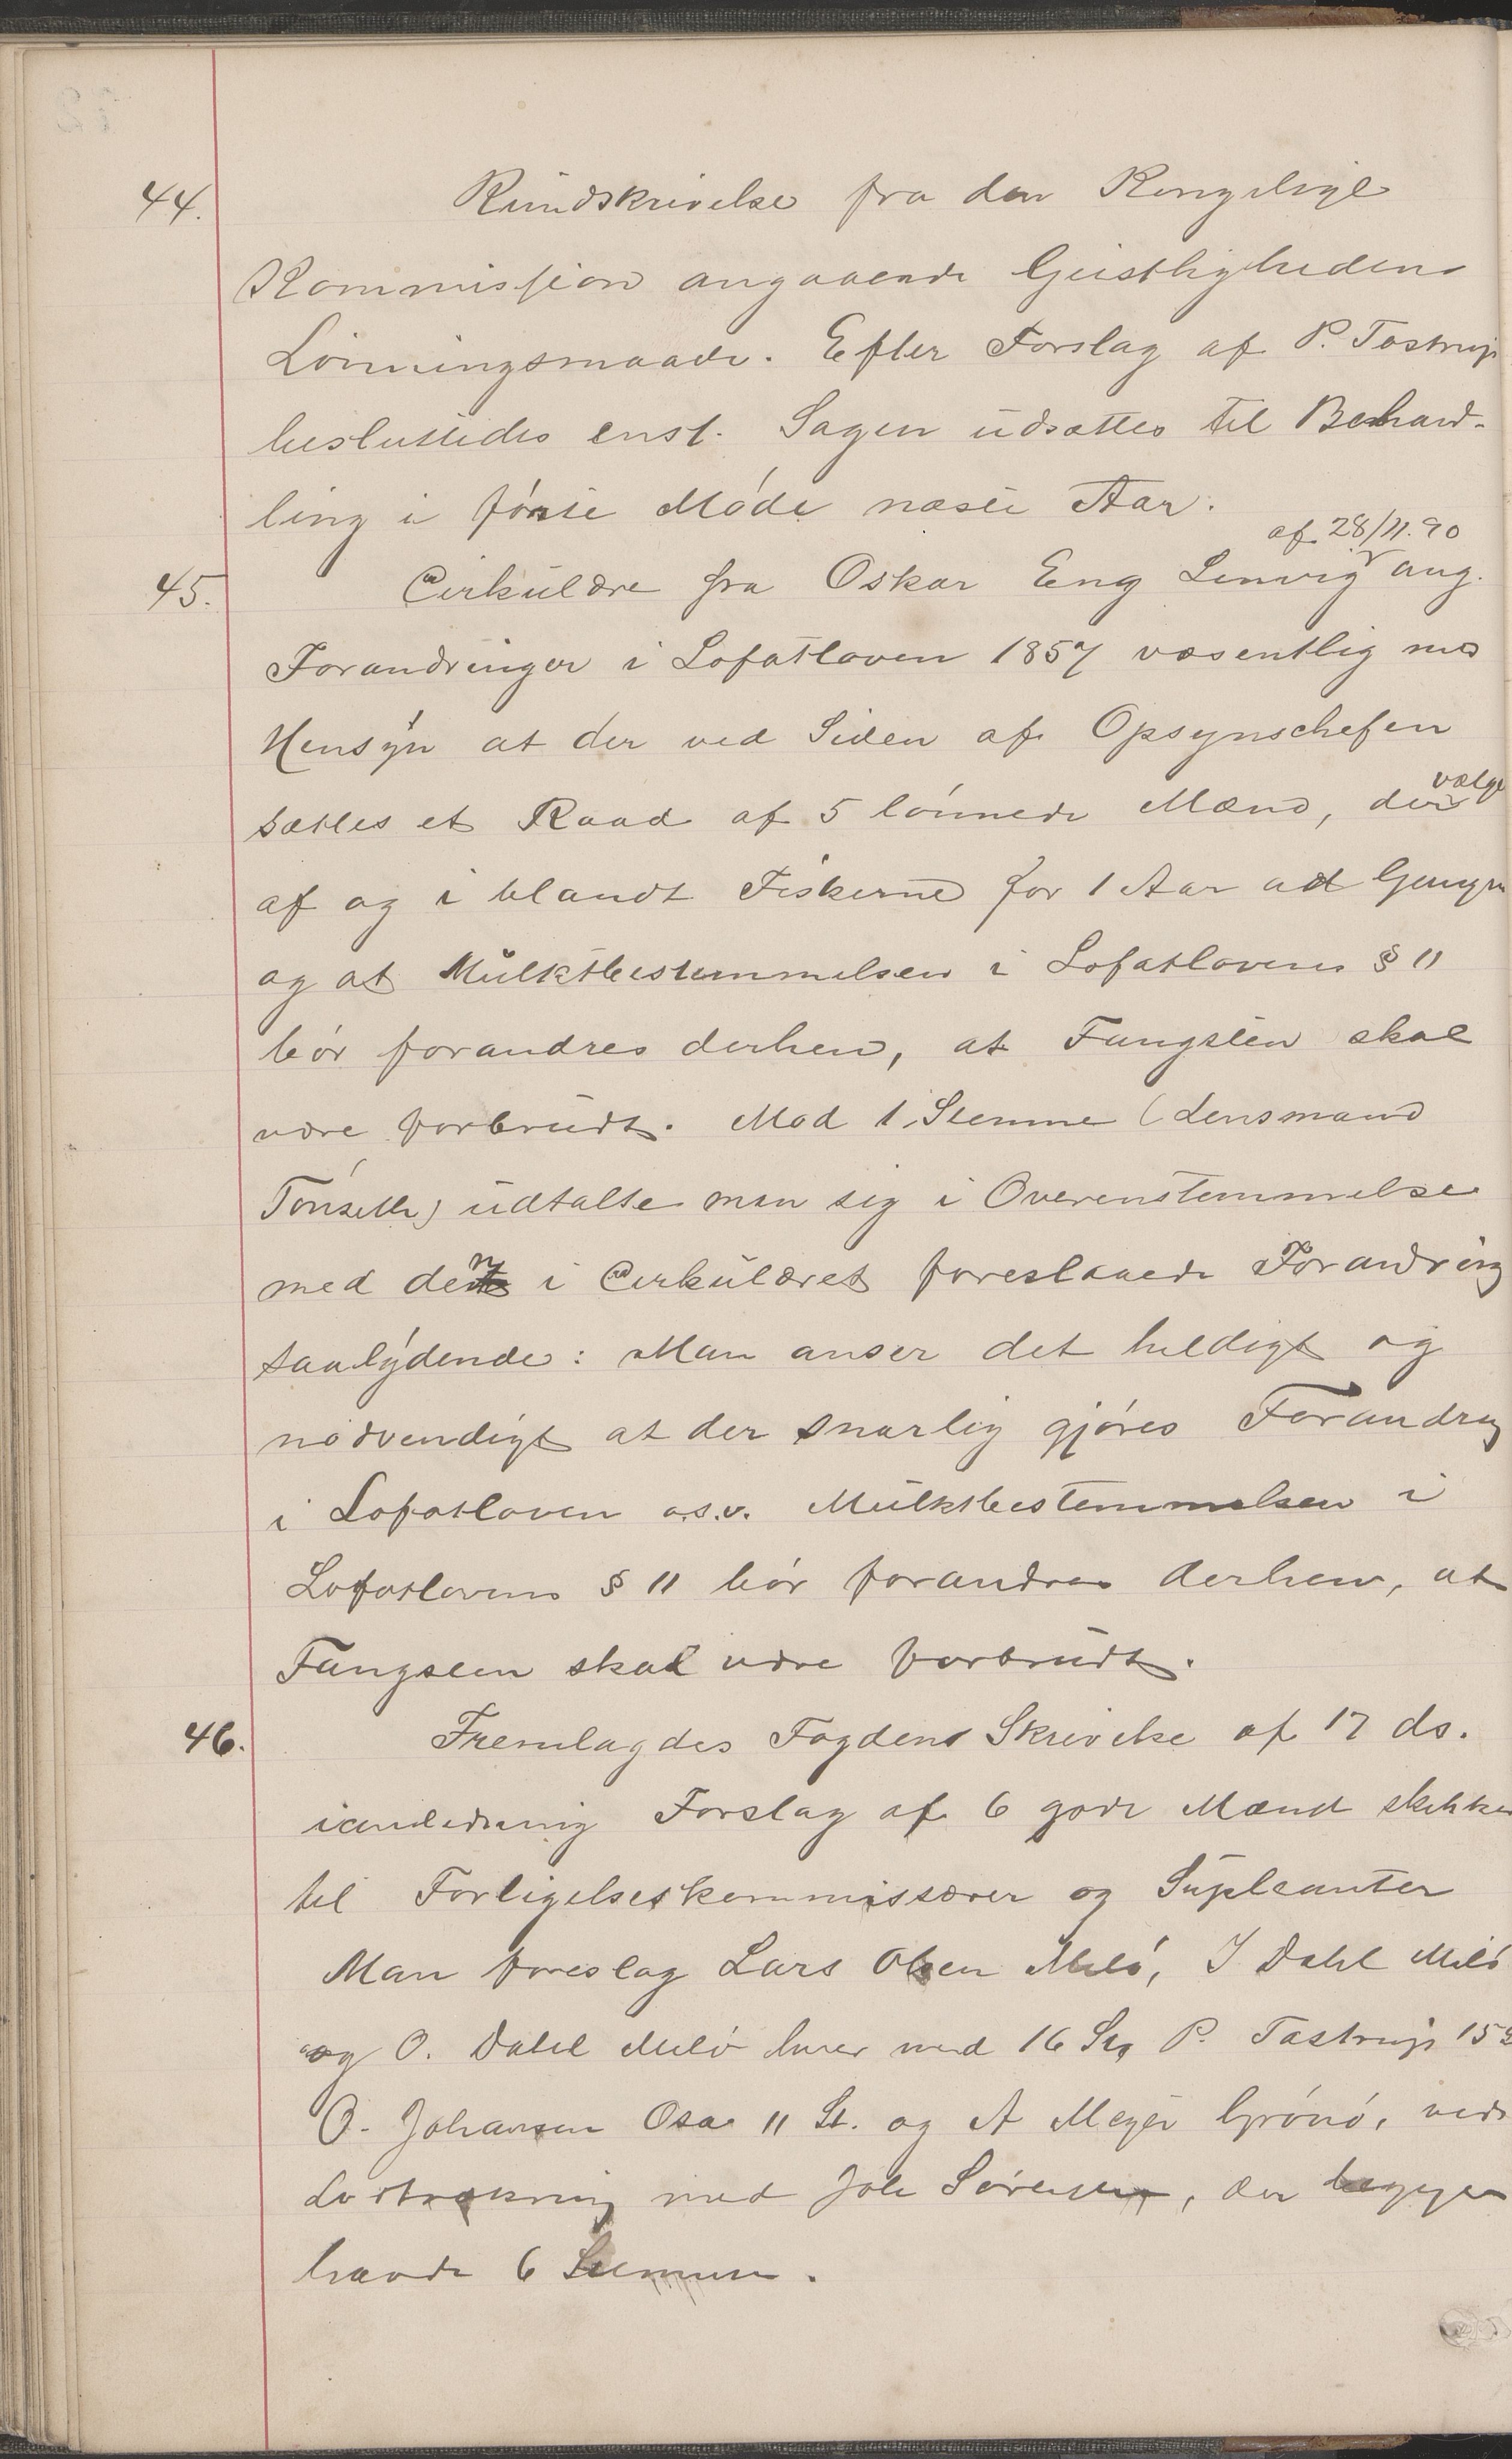 44. Rundskrivelse fra den Kongelige
Kommission angaaende Geistlighedens
Lønningsmaade. Efter Forslag af P. Tostrup
besluttedes enst. Sagen udsættes til Behand-
ling i første Møde næste Aar.
af 28/11.90
45. Cirkulære fra Oskar Eng Lenvig ang.
Forandringer i Lofatloven 1857 væsentlig med
Hensyn at der ved Siden af Opsynschefen
vælges
sættes et Raad af 5 lønnede Mænd, der
af og i blandt Fiskerne for 1 Aar ad Gangen
og at Mulktbestemmelsen i Lofatlovens § 11
bør forandres derhen, at Fangsten skal
være forbrudt. Mod 1 Stemme (Lensmand
Tønseth) udtalte man sig i Overenstemmelse
med den i Cirkulæret foreslaaede Forandring
saalydende: Man anser det heldigt og
nødvendigt at der snarlig gjøres Forandring
i Lofotloven o.s.v. Mulktbestemmelsen i
Lofotlovens § 11 bør forandres derhen, at
Fangsten skal være forbrudt.
46. Fremlagdes Fogdens Skrivelse af 17 ds.
ianledning Forslag af 6 gode Mænd skikket
til Forligelseskommissærer og Supleanter
Man foreslog Lars Olsen Melø, I Dahl Melø
og O. Dahl Melø hver med 16 St, P. Tostrup 15 S
O. Johansen Osa 11 St. og A Meyer Grønø, ved
Lodtrækning med Joh Sørensen, der begge
havde 6 Stemmer.